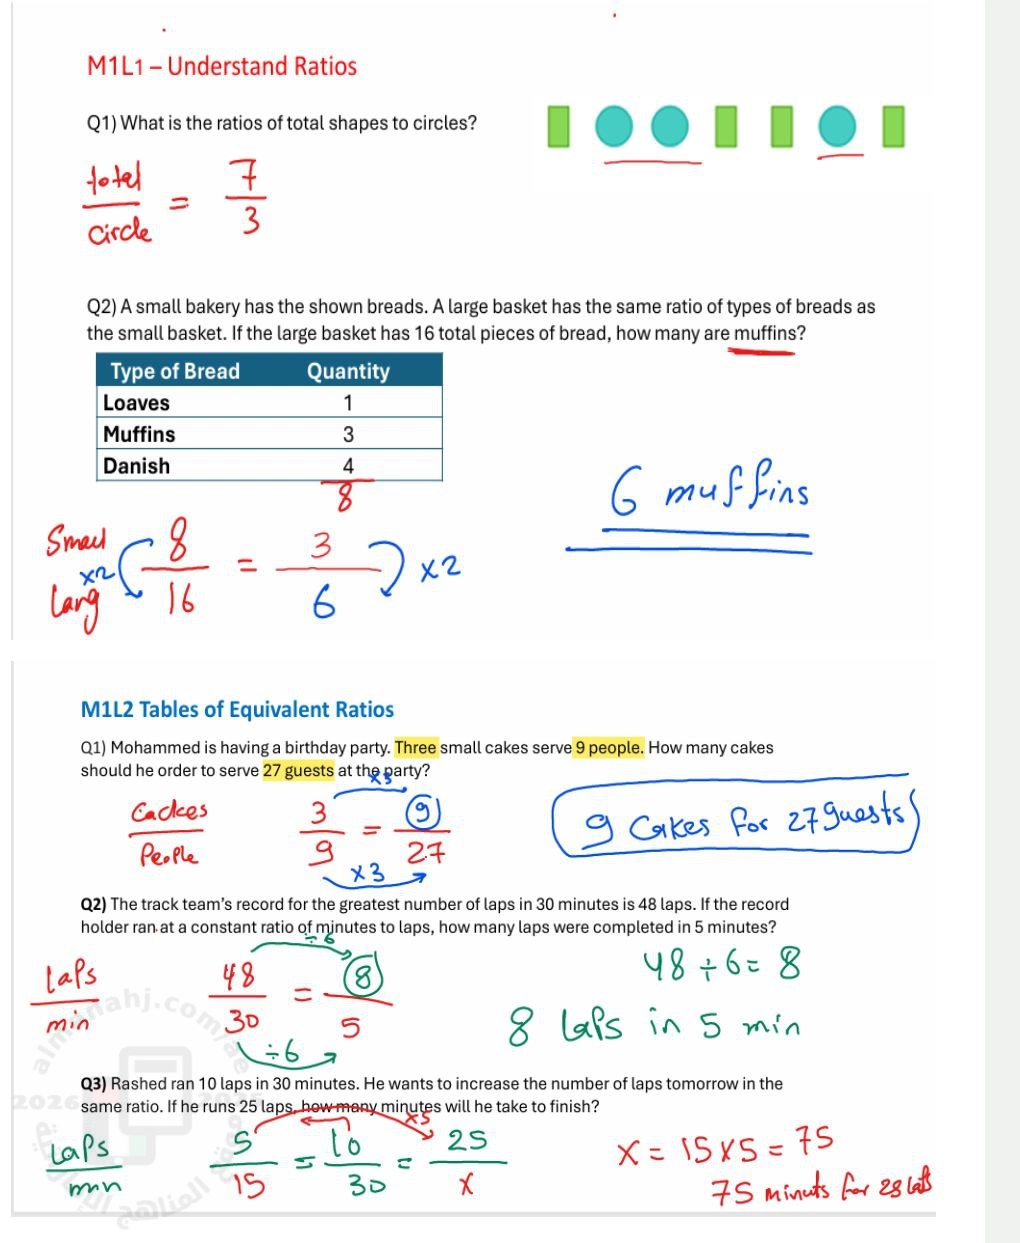 M1L1 – Understand Ratios
Q1) What is the ratios of total shapes to circles?
total
circle
=
7
3
Q2) A small bakery has the shown breads. A large basket has the same ratio of types of breads as
the small basket. If the large basket has 16 total pieces of bread, how many are muffins?
Type of Bread Quantity
Loaves 1
Muffins 3
Danish 4
8
6 muffins
Small 8 = 3
x2 x2
Larg 16 6
M1L2 Tables of Equivalent Ratios
Q1) Mohammed is having a birthday party. Three small cakes serve 9 people. How many cakes
should he order to serve 27 guests at the party?
x3
Cackes 3 = 9
People 9 27
x3
9 Cakes for 27 guests
Q2) The track team's record for the greatest number of laps in 30 minutes is 48 laps. If the record
holder ran at a constant ratio of minutes to laps, how many laps were completed in 5 minutes?
÷6
Laps 48 = 8
min 30 5
÷6
48 ÷ 6 = 8
8 laps in 5 min
almanahj.com/ae
2026 2025
Q3) Rashed ran 10 laps in 30 minutes. He wants to increase the number of laps tomorrow in the
same ratio. If he runs 25 laps, how many minutes will he take to finish?
x5
Laps 5 = 10 = 25
min 15 30 x
x = 15 x 5 = 75
75 minuts for
المناهج